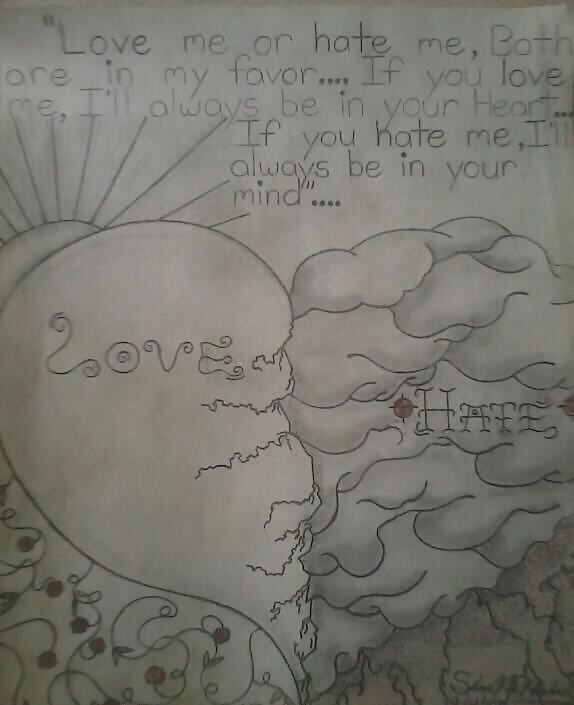 "Love me or hate me, Both
are in my favor.... If you love
me, I'll always be in your Heart...
If you hate me, I'll
always be in your
mind"....
LOVE
HATE